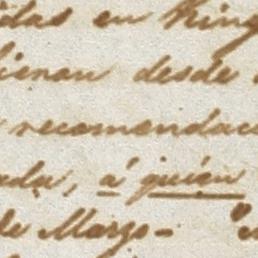 idas en King
lienou desde
recomendac
ada, á quien
de Marzo-